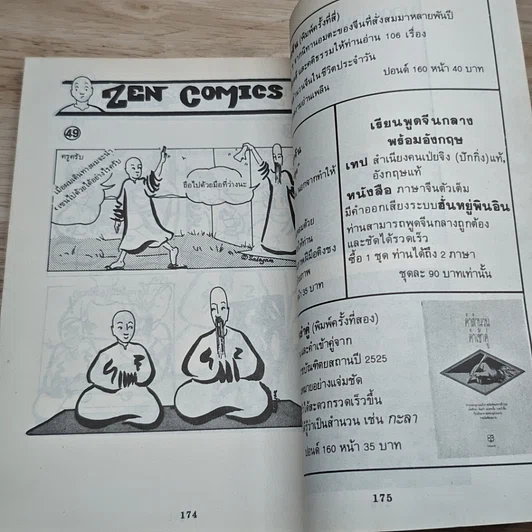 ZEN COMICS
49
ครูครับ
ถือไปด้วยมือที่ว่างนะ
174
(พิมพ์ครั้งที่สี่)
นิทานอมตะของจีนที่สั่งสมมาหลายพันปี
และคติธรรมให้ท่านอ่าน 106 เรื่อง
ในชีวิตประจำวัน
ปอนด์ 160 หน้า 40 บาท
เรียนพูดจีนกลาง
พร้อมอังกฤษ
เทป สำเนียงคนเป่ยจิง (ปักกิ่ง)แท้,
อังกฤษแท้
หนังสือ ภาษาจีนตัวเต็ม
มีคำออกเสียงระบบฮั่นหยู่พินอิน
ท่านสามารถพูดจีนกลางถูกต้อง
และชัดได้รวดเร็ว
ซื้อ 1 ชุด ท่านได้ถึง 2 ภาษา
ชุดละ 90 บาทเท่านั้น
35 บาท
(พิมพ์ครั้งที่สอง)
และคำเข้าคู่จาก
บัณฑิตยสถานปี 2525
หมายอย่างแจ่มชัด
ได้สะดวกรวดเร็วขึ้น
รู้ว่าเป็นสำนวน เช่น กะลา
ปอนด์ 160 หน้า 35 บาท
คำสำนวน
คำเข้าคู่
175